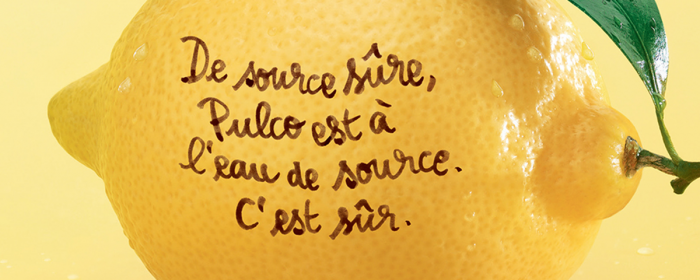 De source sûre,
Pulco est à
l'eau de source.
C'est sûr.